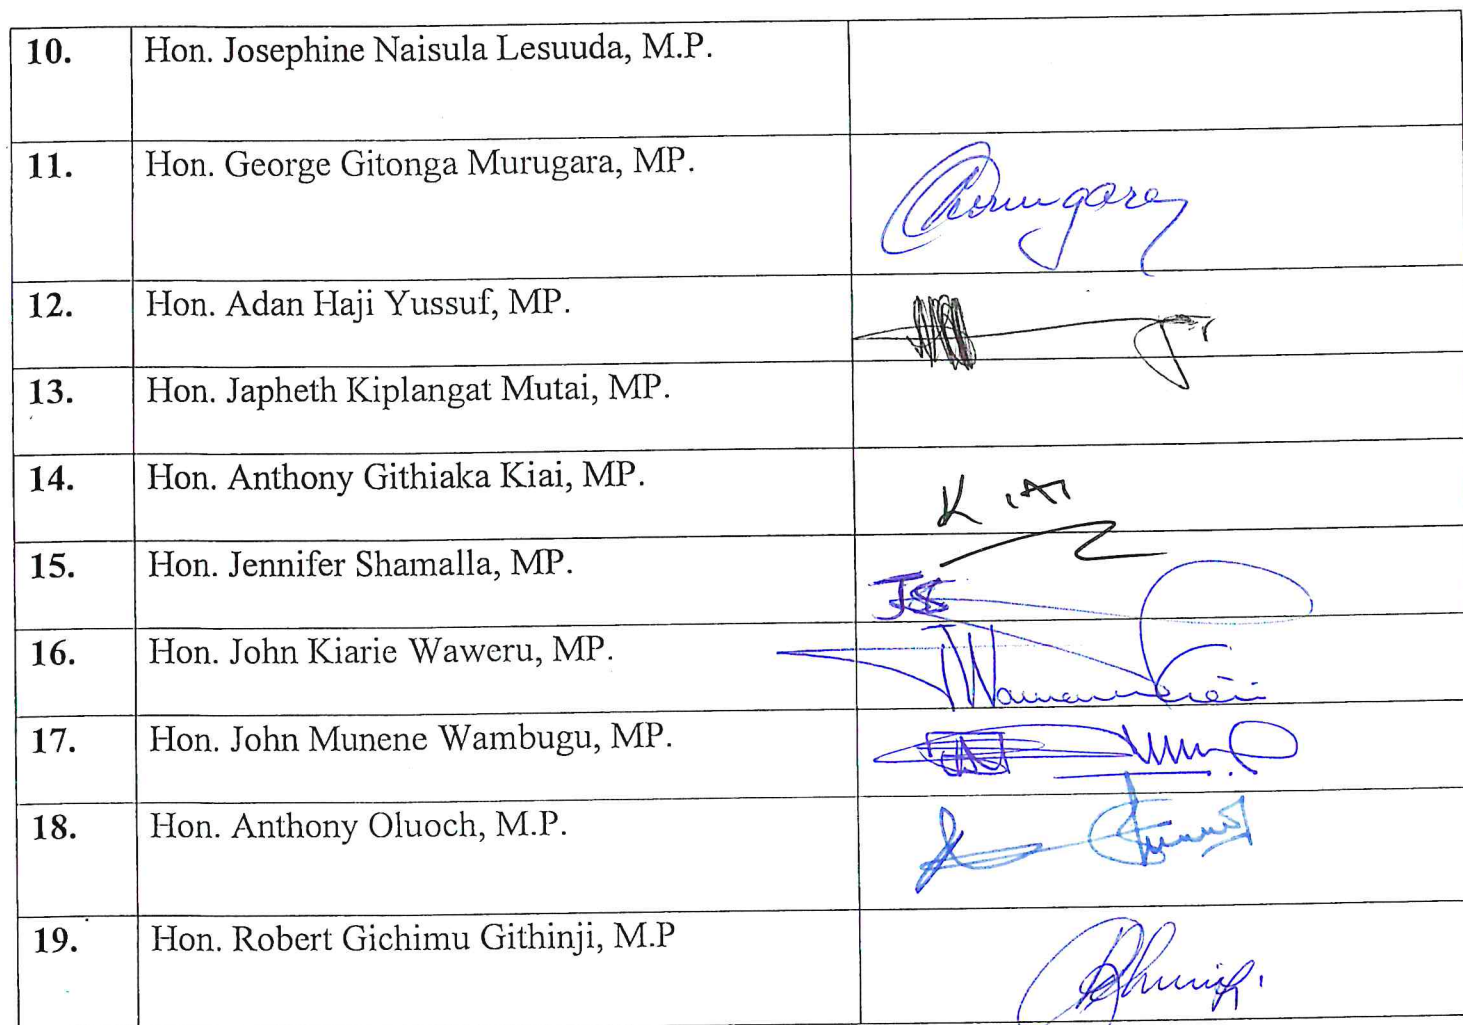 10. Hon. Josephine Naisula Lesuuda, M.P.
11. Hon. George Gitonga Murugara, MP.
12. Hon. Adan Haji Yussuf, MP.
13. Hon. Japheth Kiplangat Mutai, MP.
14. Hon. Anthony Githiaka Kiai, MP.
15. Hon. Jennifer Shamalla, MP.
16. Hon. John Kiarie Waweru, MP.
17. Hon. John Munene Wambugu, MP.
18. Hon. Anthony Oluoch, M.P.
19. Hon. Robert Gichimu Githinji, M.P